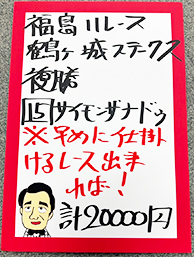 福島11レース
鶴ヶ城ステークス
復勝
15 サイモンザナドゥ
※早めに仕掛
けるレース出来
れば!
計20000円